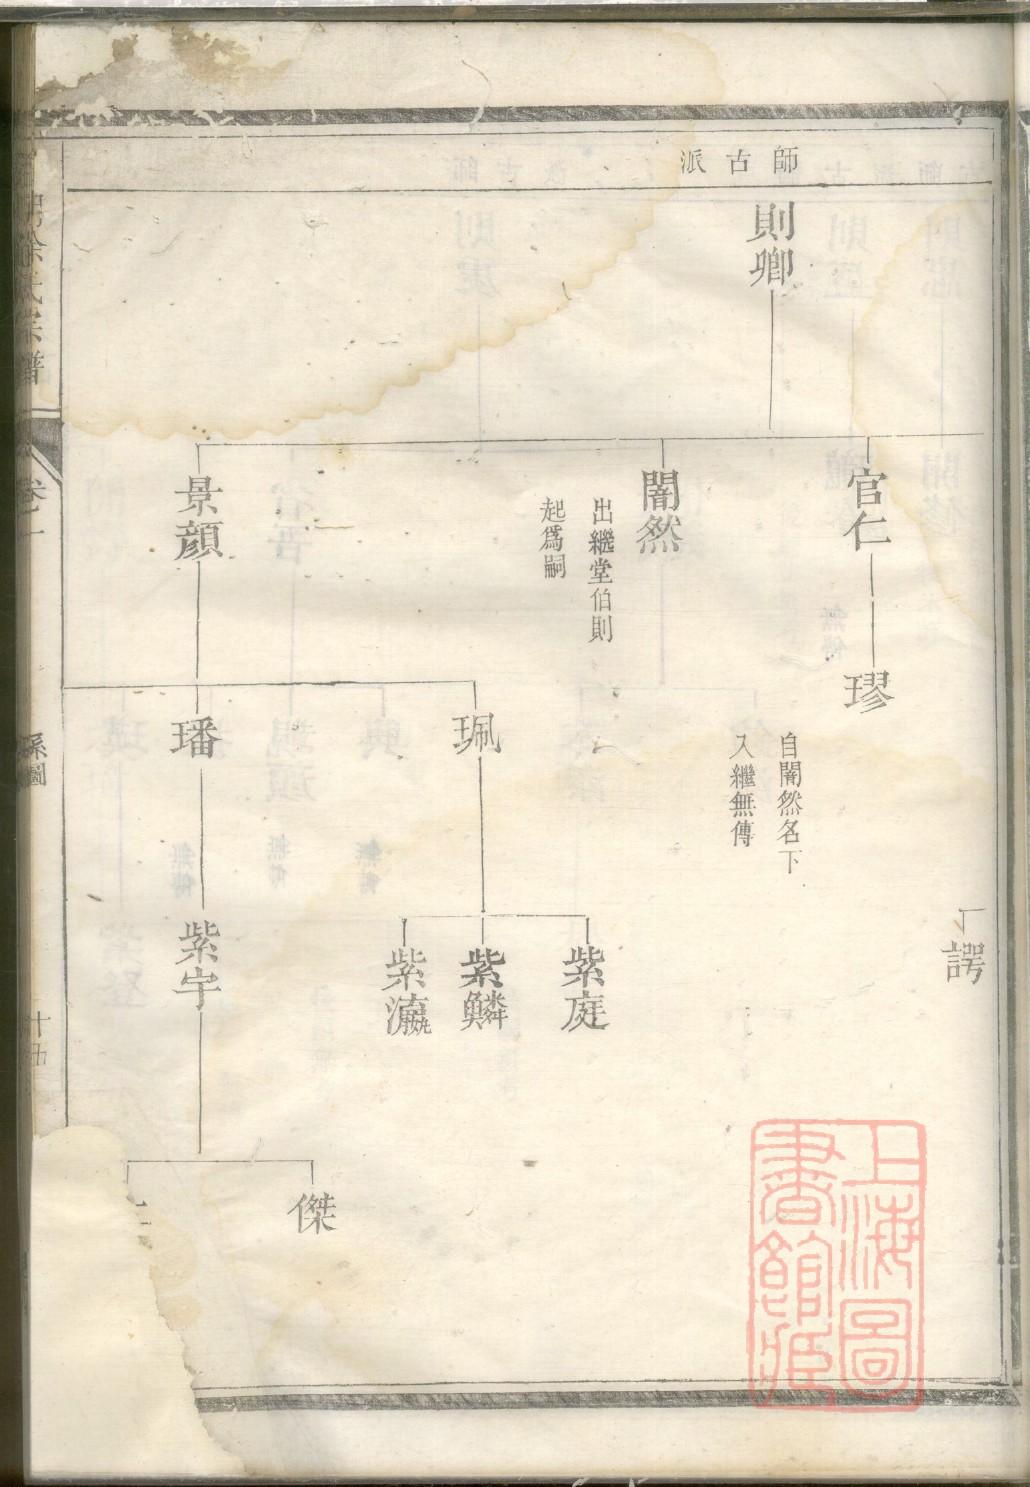 師古派
則卿
官仁
闇然
出繼堂伯則
起爲嗣
景顔
璆
自闇然名下
入繼無傳
珮
璠
諤
紫庭
紫鱗
紫瀛
紫宇
傑
徐氏宗譜
卷一
系圖
十五
上海圖
書館藏